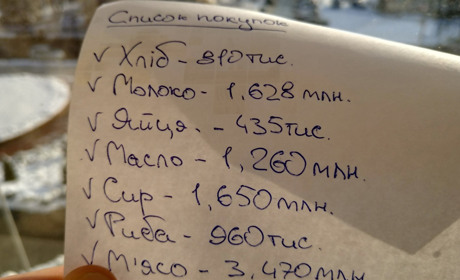 Список покупок
✓ Хліб - 810тис.
✓ Молоко - 1,628 млн.
✓ Яйця. - 435тис.
✓ Масло - 1,260млн.
✓ Сир - 1,650млн.
✓ Риба - 960тис.
✓ М'ясо - 3,470млн